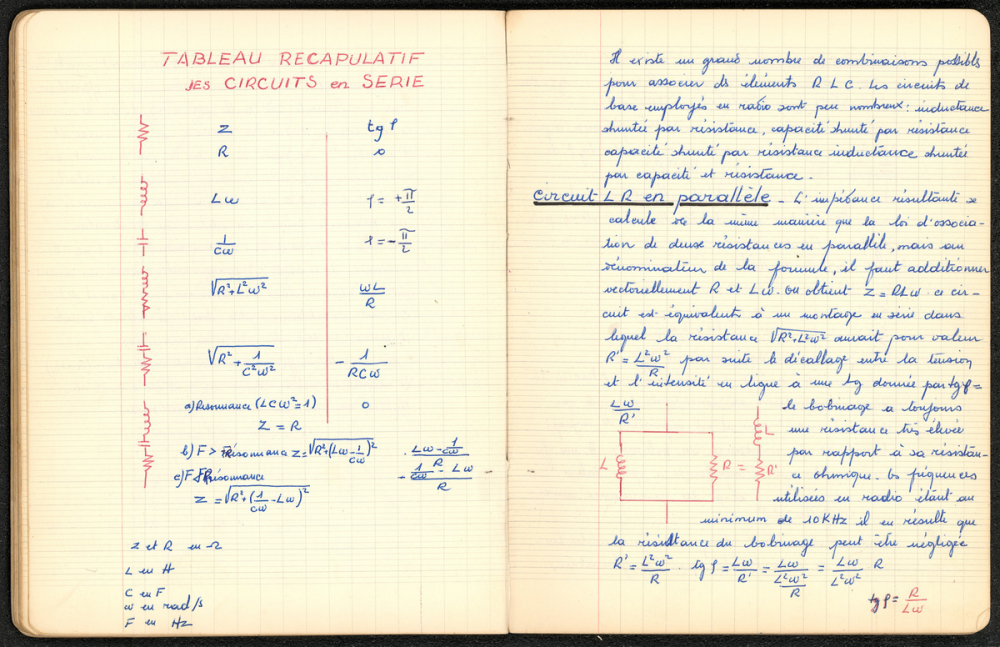 TABLEAU RECAPULATIF
DES CIRCUITS en SERIE
Z tg φ
R 0
Lω φ = +π/2
1/Cω φ = -π/2
√R²+L²ω² ωL/R
√R²+1/C²ω² - 1/RCω
a) Résonnance (LCω²=1) 0
Z = R
b) F > Résonnance Z = √R²+(Lω-1/Cω)² Lω-1/Cω / R
c) F Résonnance - 1/Cω - Lω / R
Z = √R²+(1/Cω-Lω)²
Z et R en Ω
L en H
C en F
ω en rad/s
F en Hz
Il existe un grand nombre de combinaisons possibles
pour associer des éléments R L C. Les circuits de
base employés en radio sont peu nombreux : inductance
shuntée par résistance, capacité shunté par résistance
capacité shunté par résistance inductance shuntée
par capacité et résistance.
Circuit LR en parallèle - L'impédance résultante se
calcule de la même manière que la loi d'associa-
tion de deux résistances en parallèle, mais au
dénominateur de la formule, il faut additionner
vectoriellement R et Lω. On obtient Z = RLω ce cir-
cuit est équivalent à un montage en série dans
lequel la résistance √R²+L²ω² aurait pour valeur
R' = L²ω²/R par suite le décallage entre la tension
et l'intensité en ligne à une tg donnée par tg φ =
Lω/R' le bobinage a toujours
une résistance très élevée
L R = L R' par rapport à sa résistan-
ce ohmique. Les fréquences
utilisées en radio étant au
minimum de 10 KHz il en résulte que
la résistance du bobinage peut être négligée
R' = L²ω²/R . tg φ = Lω/R' = Lω/(L²ω²/R) = Lω/L²ω² R
tg φ = R/Lω